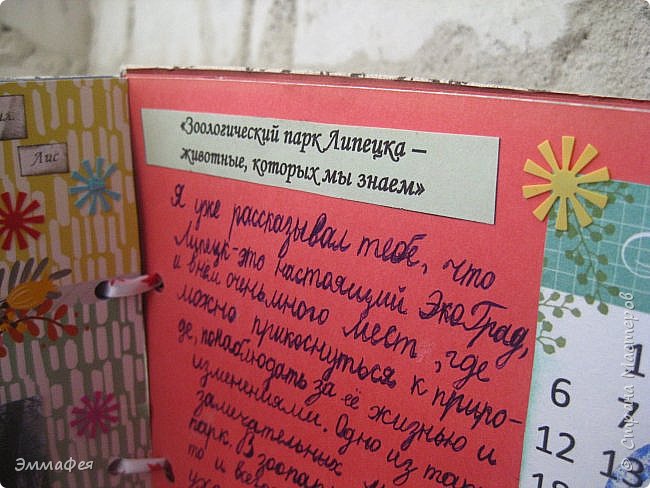 Лис
«Зоологический парк Липецка –
животные, которых мы знаем»
Я уже рассказывал тебе, что
Липецк-это настоящий ЭкоГрад,
и в нём очень много мест, где
можно прикоснуться к приро-
де, понаблюдать за её жизнью и
изменениями. Одно из так
замечательных
парк. В зоопар
то и все
1
6 7
12 13
© Страна Мастеров
ЭммаФея